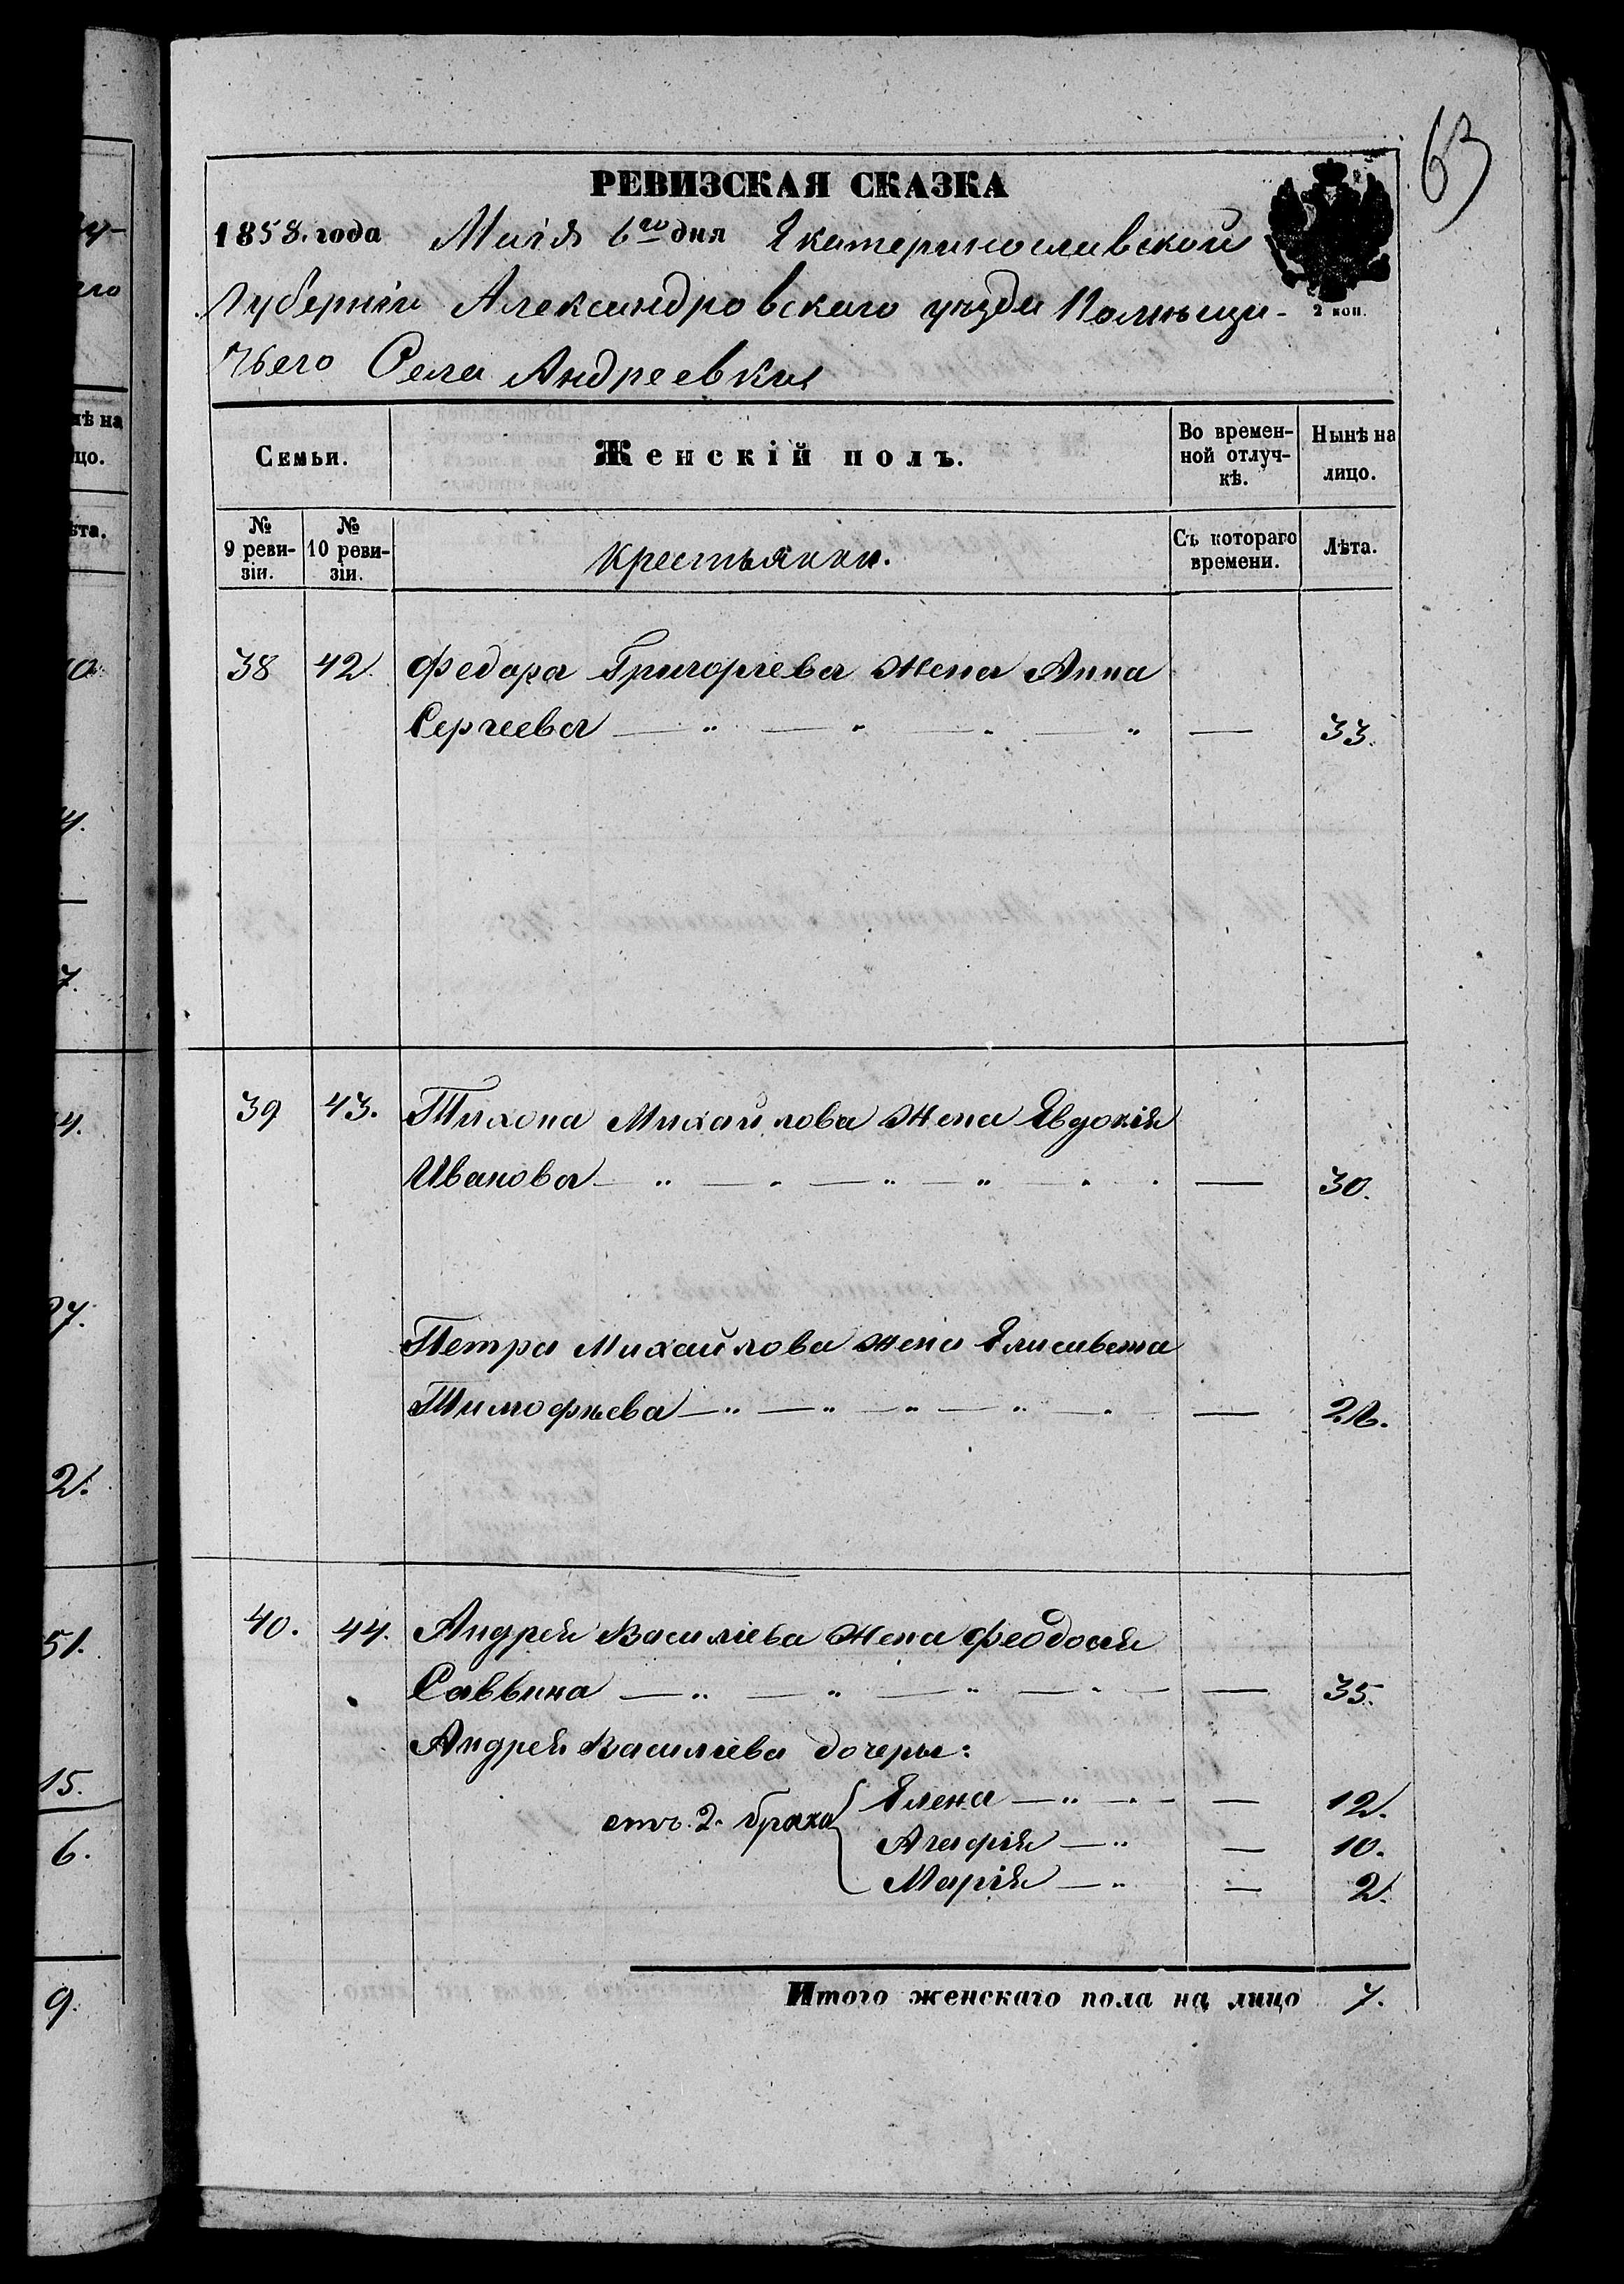 63
РЕВИЗСКАЯ СКАЗКА
1858. года Маія 6го дня Екатеринославской
Губерніи Александровскаго уѣзда Помѣщи-
2 коп.
чьего Села Андреевки
Семьи. Женскій полъ. Во времен-ной отлуч-кѣ. Нынѣ на лицо.
№ 9 реви-зіи. № 10 реви-зіи. Крестьянки. Съ котораго времени. Лѣта.
38 42. Федора Григорьева жена Анна
Сергеева — „ — „ — „ — „ — 33.
39 43. Тихона Михайлова жена Евдокія
Иванова — „ — „ — „ — „ — „ — 30.
Петра Михайлова жена Елисавета
Тимофѣева — „ — „ — „ — „ — „ —
40. 44. Андрея Василіева жена Феодосія
Саввина — „ — „ — „ — „ — — 35.
Андрея Василіева дочеры:
отъ 2. брака { Елена — „ — „ — — 12.
Агафія — „ — 10.
Марія — „ — 2.
Итого женскаго пола на лицо 7.